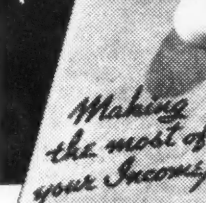 Making
the most of
your Income